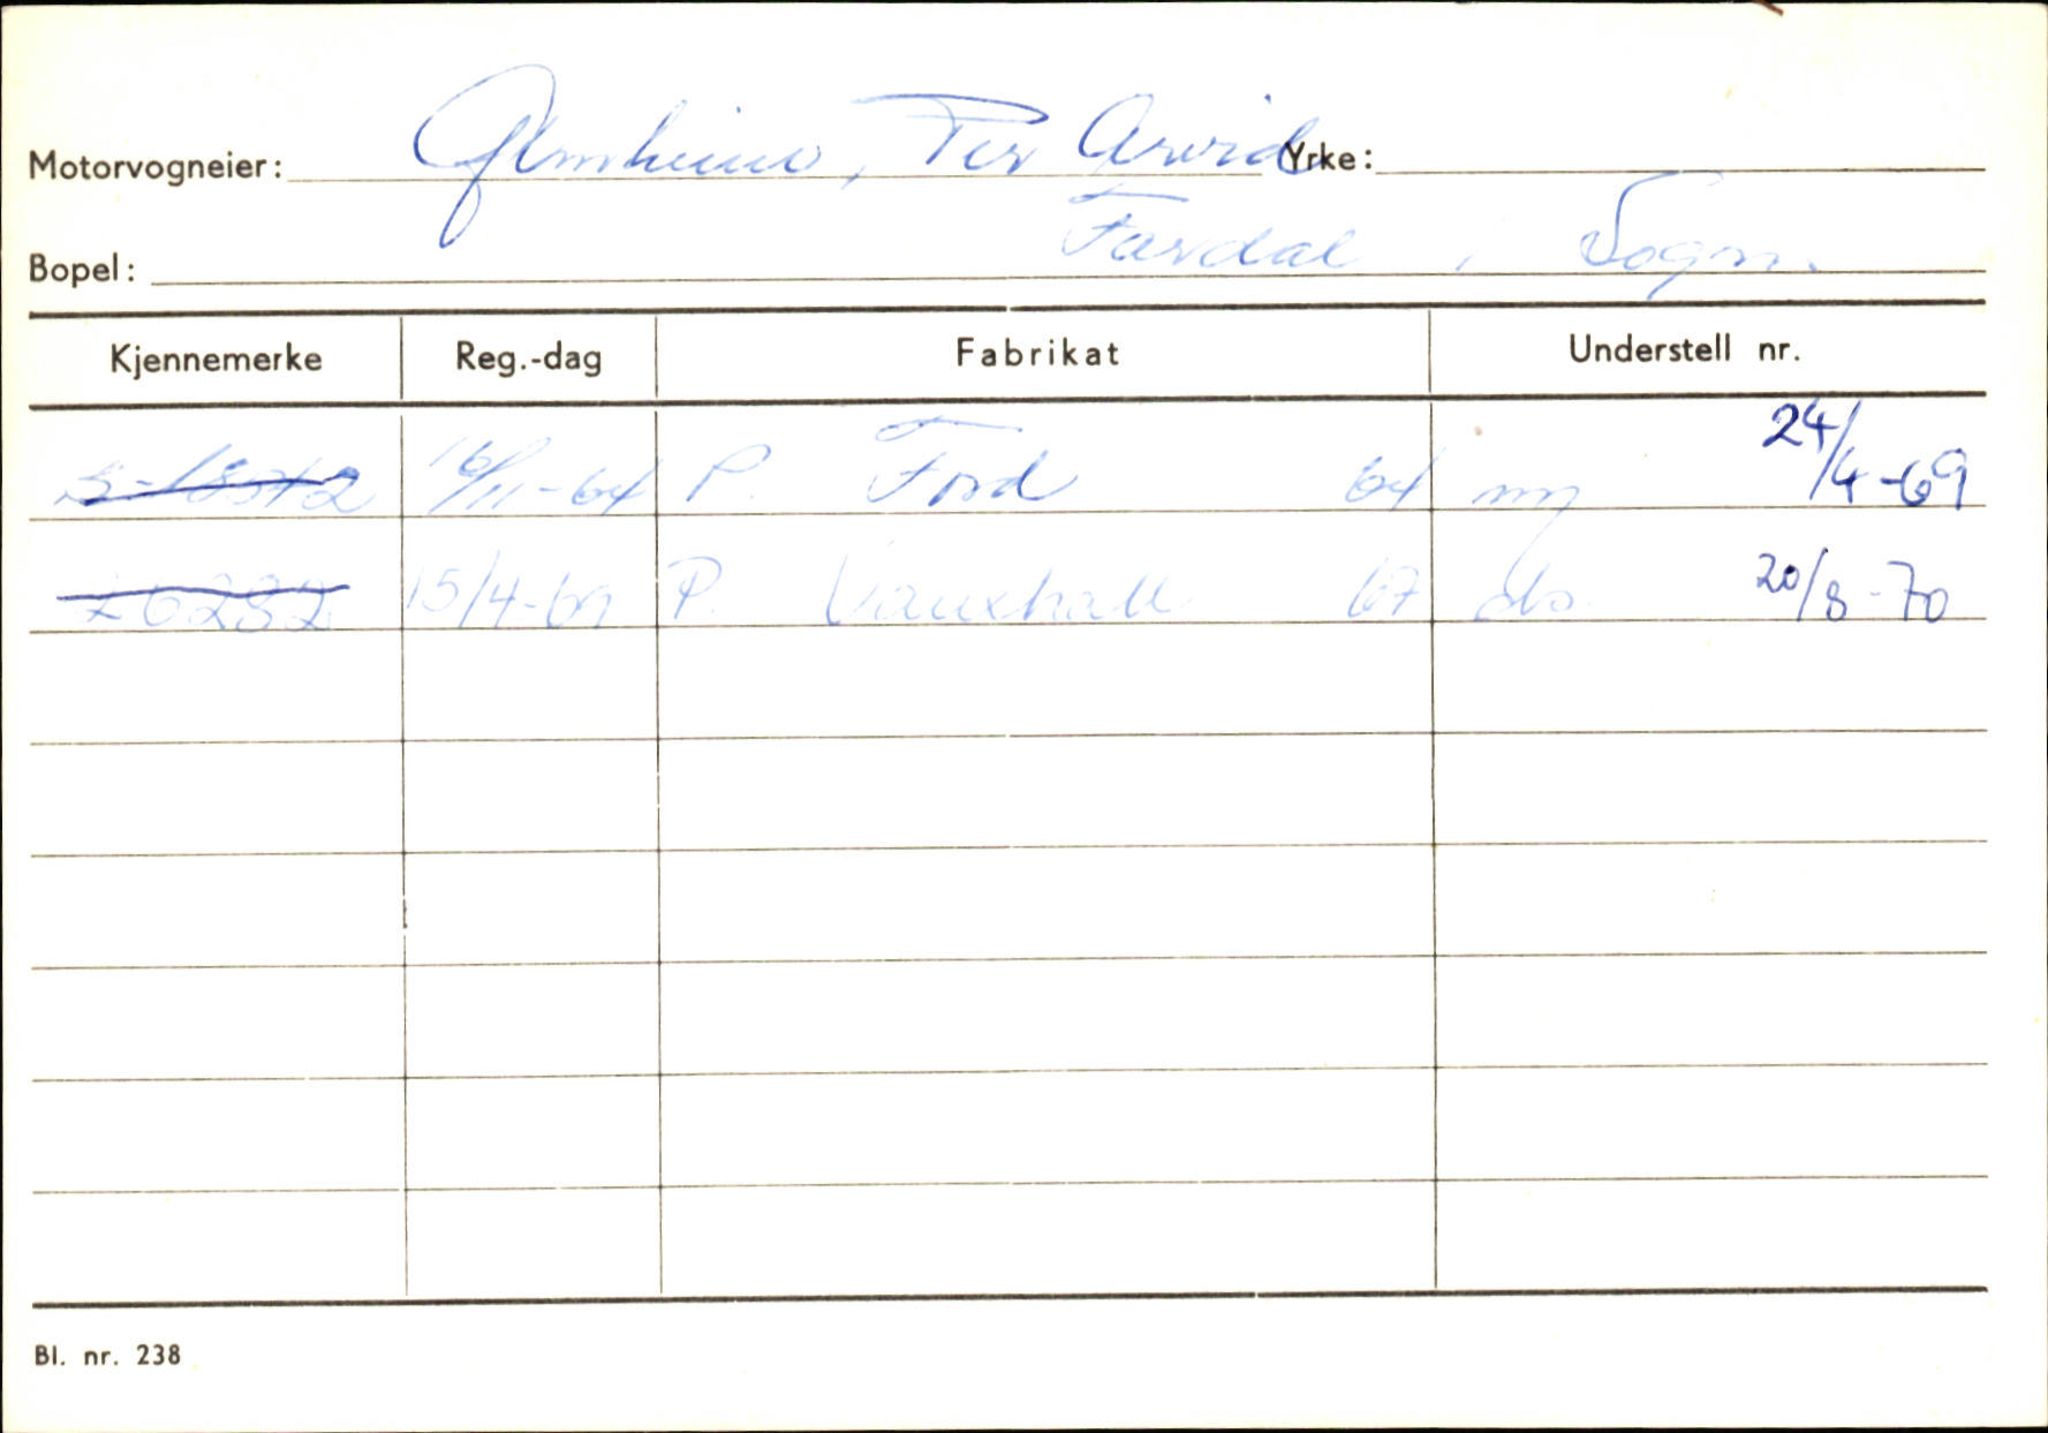 Motorvogneier: Glmheim, Per Arvid Yrke:
Bopel: Fardal i Sogn.
Kjennemerke Reg.-dag Fabrikat Understell nr.
16/11-64 P. Ford 64 ny 24/4-69
15/4-69 P. Vauxhall 67 do. 20/8-70
Bl. nr. 238